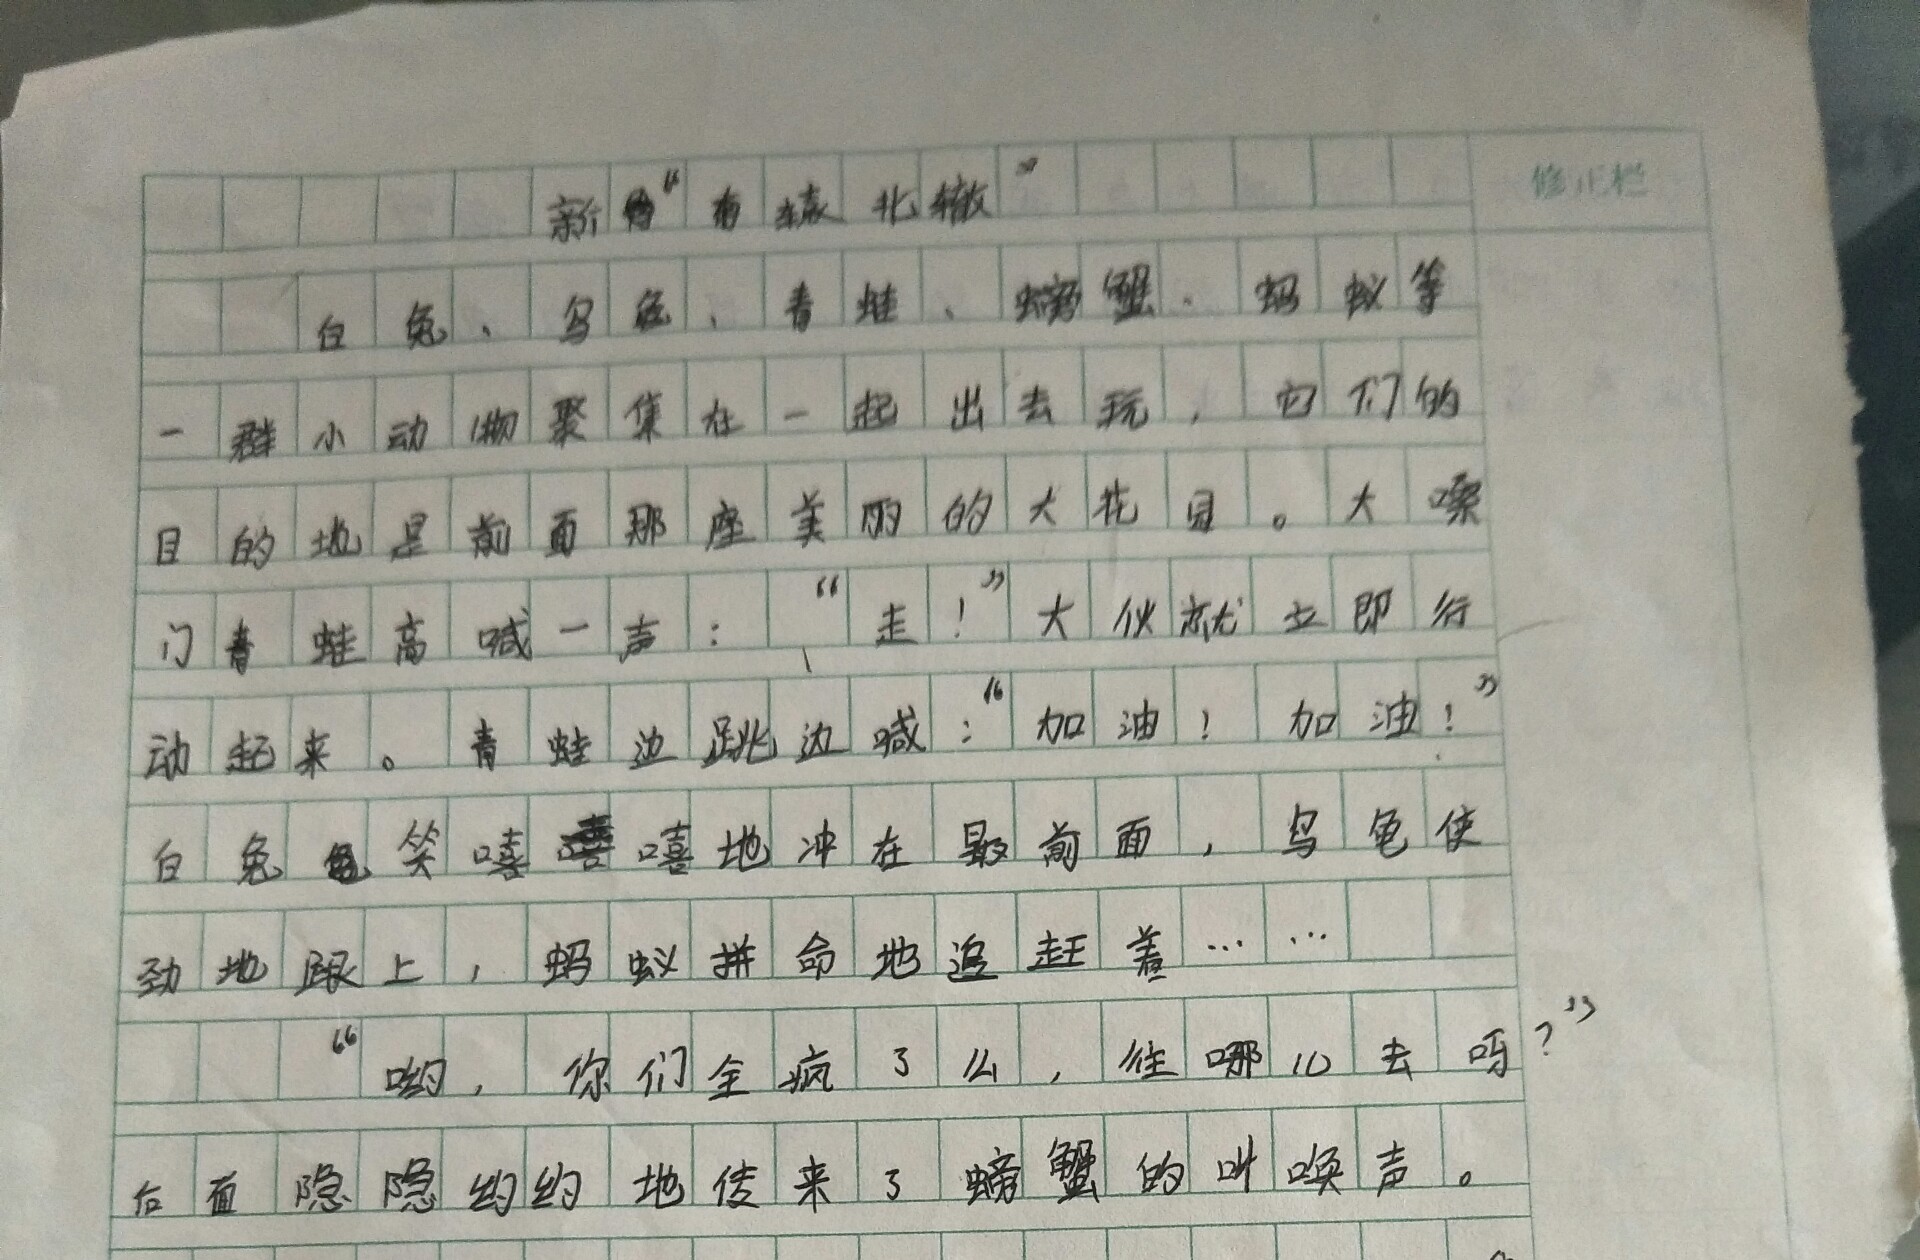 新“南辕北辙”
修正栏
白兔、乌龟、青蛙、螃蟹、蚂蚁等
一群小动物聚集在一起出去玩，它们的
目的地是前面那座美丽的大花园。大嗓
门青蛙高喊一声：“走！”大伙就立即行
动起来。青蛙边跳边喊：“加油！加油！”
白兔笑嘻嘻地冲在最前面，乌龟使
劲地跟上，蚂蚁拼命地追赶着……
“哟，你们全疯了么，往哪儿去呀？”
后面隐隐约约地传来了螃蟹的叫唤声。